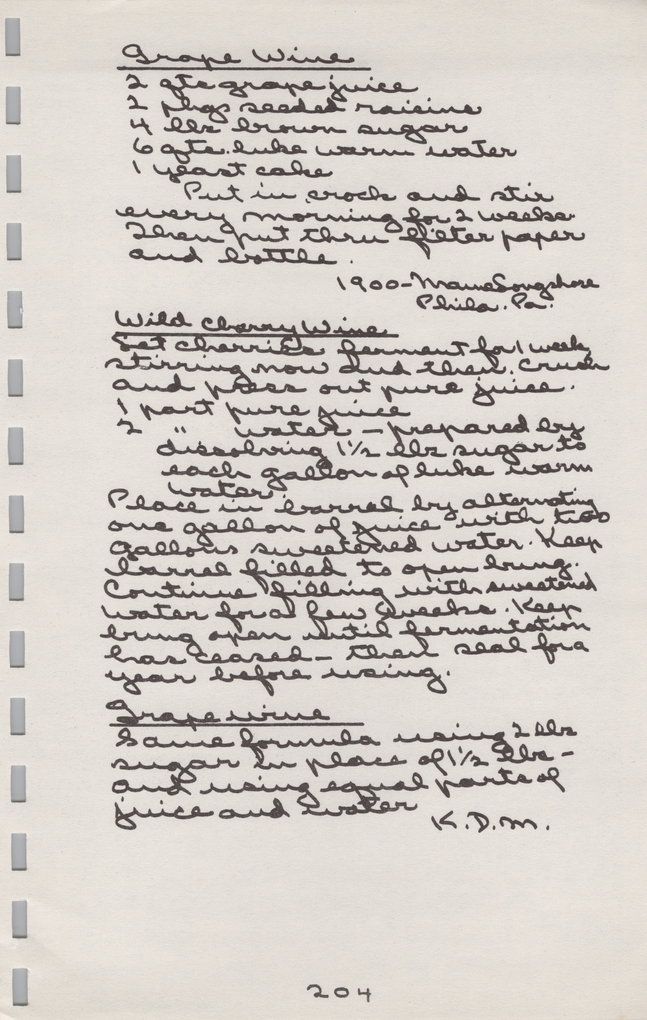 Grape Wine
2 qts grape juice
2 pkgs seeded raisins
4 lbs brown sugar
6 qts. luke warm water
1 yeast cake
Put in crock and stir
every morning for 2 weeks.
Then put thru filter paper
and bottle.
1900-Mame Songshore
Phila. Pa.
Wild Cherry Wine
Let cherries ferment for 1 week
stirring now and then. Crush
and press out pure juice.
1 part pure juice
2 " water - prepared by
dissolving 1½ lbs sugar to
each gallon of luke warm
water.
Place in barrel by alternating
one gallon of juice with two
gallons sweetened water. Keep
barrel filled to open bung.
Continue filling with sweetened
water for a few weeks. Keep
bung open until fermentation
has ceased - then seal for a
year before using.
Grape wine
Same formula using 2 lbs
sugar in place of 1½ lbs -
and using equal parts of
juice and water
K.D.M.
204